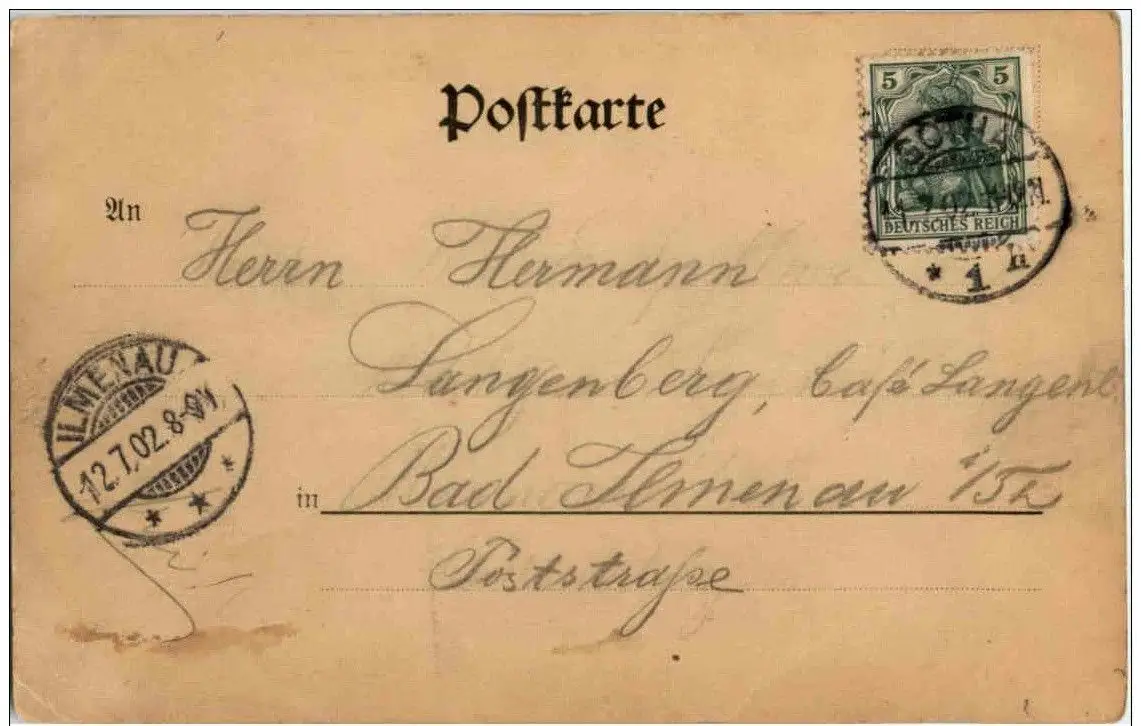 Postkarte
5 5
DEUTSCHES REICH
GOTHA
* 1
An Herrn Hermann
Langenberg, Café Langenb
in Bad Ilmenau i/Th
Poststraße
ILMENAU
12.7.02.8-9V.
* * *